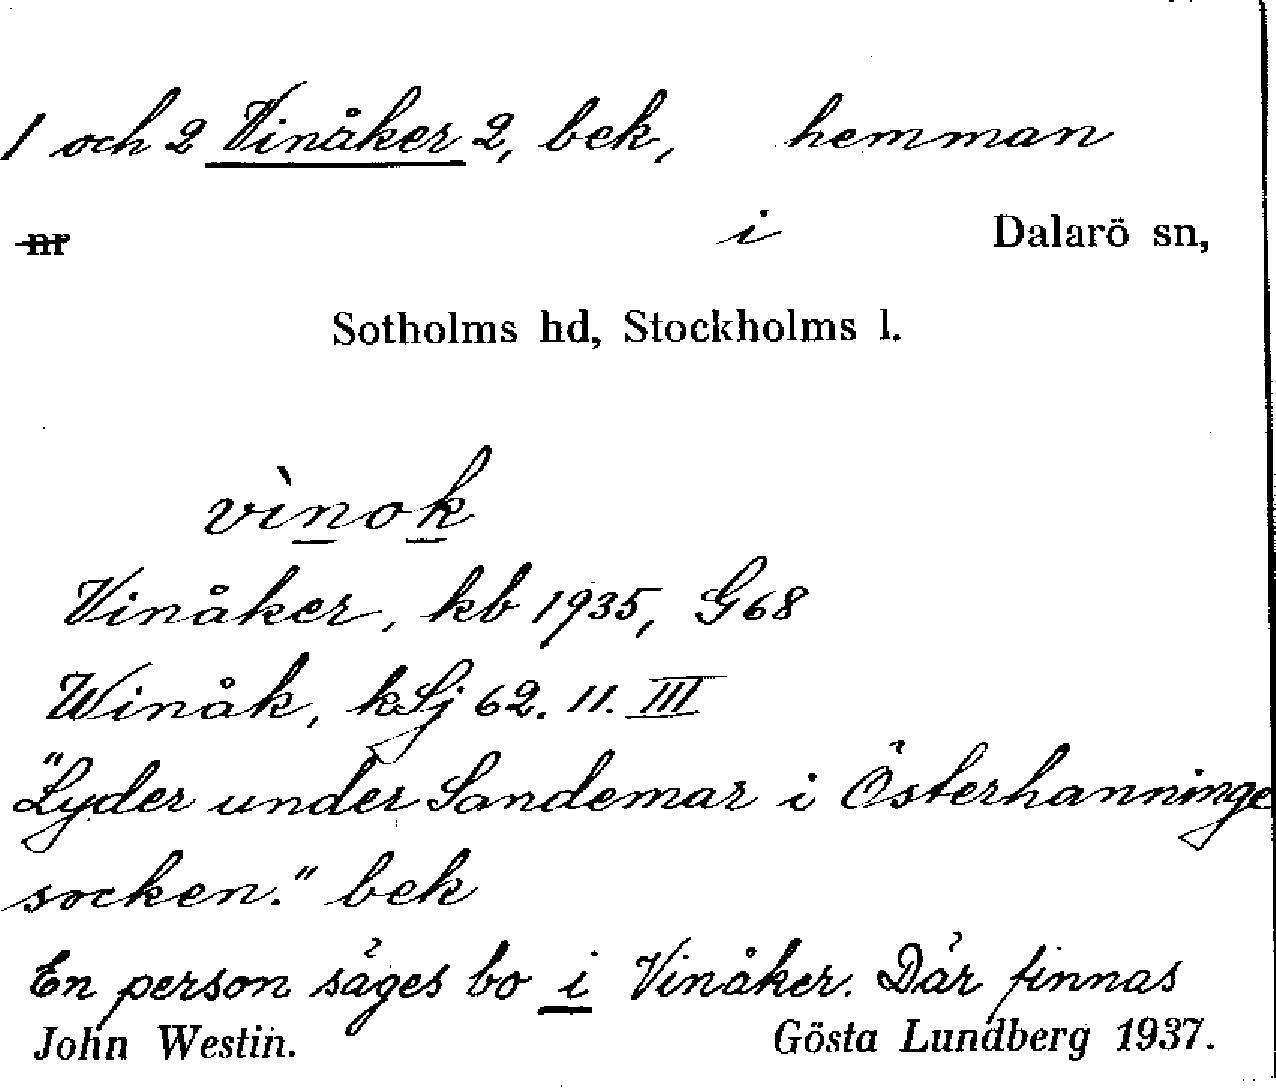 1 och 2 Vinåker 2, bek, hemman
nr i Dalarö sn,
Sotholms hd, Stockholms l.
vìnok
Vinåker, kb 1935, G68
Winåk, kSj 62. 11. III
"Lyder under Sandemar i Österhanninge
socken." bek
En person säges bo i Vinåker. Där finnas
John Westin. Gösta Lundberg 1937.